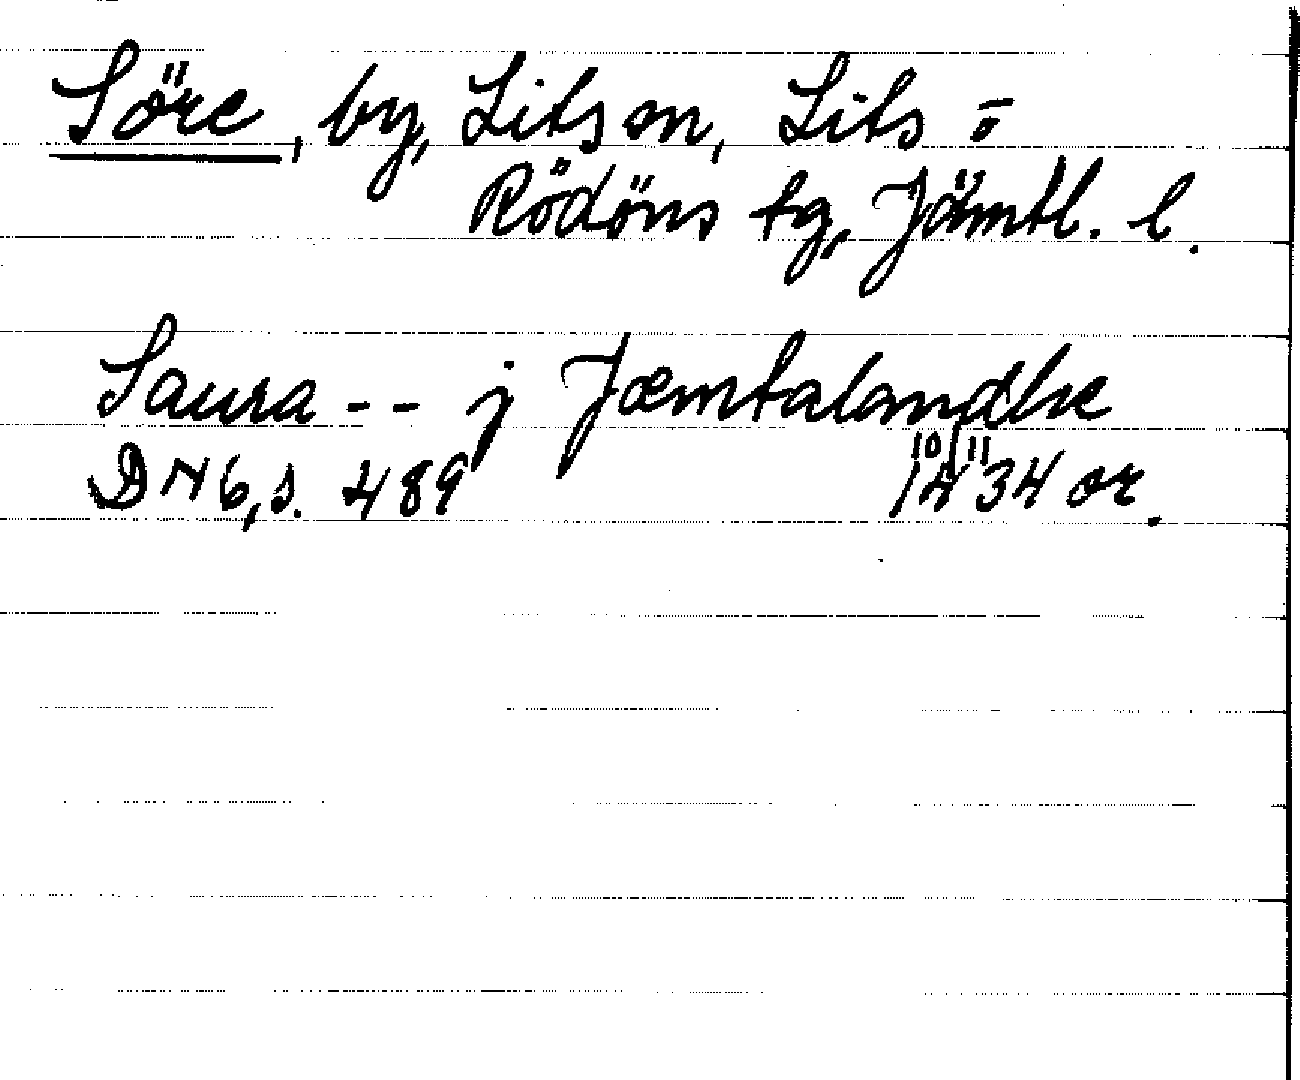 Söre, by, Lits sn, Lits o
Rödöns tg, Jämtl. l.
Saura - - j Jæmtalandhe
DN 6, s. 489 10/11 1434 or.